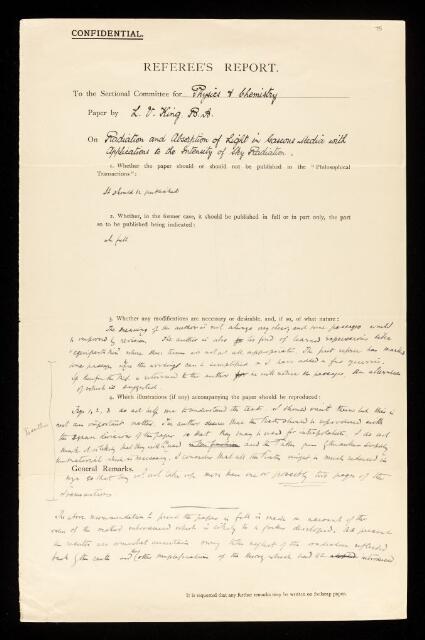 CONFIDENTIAL.
REFEREE'S REPORT.
To the Sectional Committee for Physics & Chemistry
Paper by L. V. King B.A.
On Radiation and Absorption of Light in Gaseous Media with
Applications to the Intensity of Sky Radiation.
1. Whether the paper should or should not be published in the "Philosophical
Transactions":
It should be published
2. Whether, in the former case, it should be published in full or in part only, the part
so to be published being indicated:
In full
3. Whether any modifications are necessary or desirable, and, if so, of what nature:
The meaning of the author is not always very clear, and some passages would
be improved by revision. The author is also too fond of learned expressions like
"equipartition" where these terms are not at all appropriate. The first referee has marked
some passages where the wording can be simplified and I have added a few queries.
of which is suggested
4. Which illustrations (if any) accompanying the paper should be reproduced:
Figs 1, 2, 3 do not help me to understand the text. I should omit them but this is
not an important matter. The author desires that the Plate should be reproduced with
the square divisions of the paper so that they may be used for interpolation. I do not
think it is likely that they will be used
is necessary. I consider that all the Plates might be much reduced in
General Remarks.
size so that they will not take up more than one or possibly two pages of the
Transactions
The above recommendation to print the paper in full is made on account of the
value of the method introduced which is likely to be further developed. At present
the results are somewhat uncertain owing to the neglect of the radiation reflected
back by the earth and other simplifications of the theory which had to be introduced
It is requested that any further remarks may be written on foolscap paper.